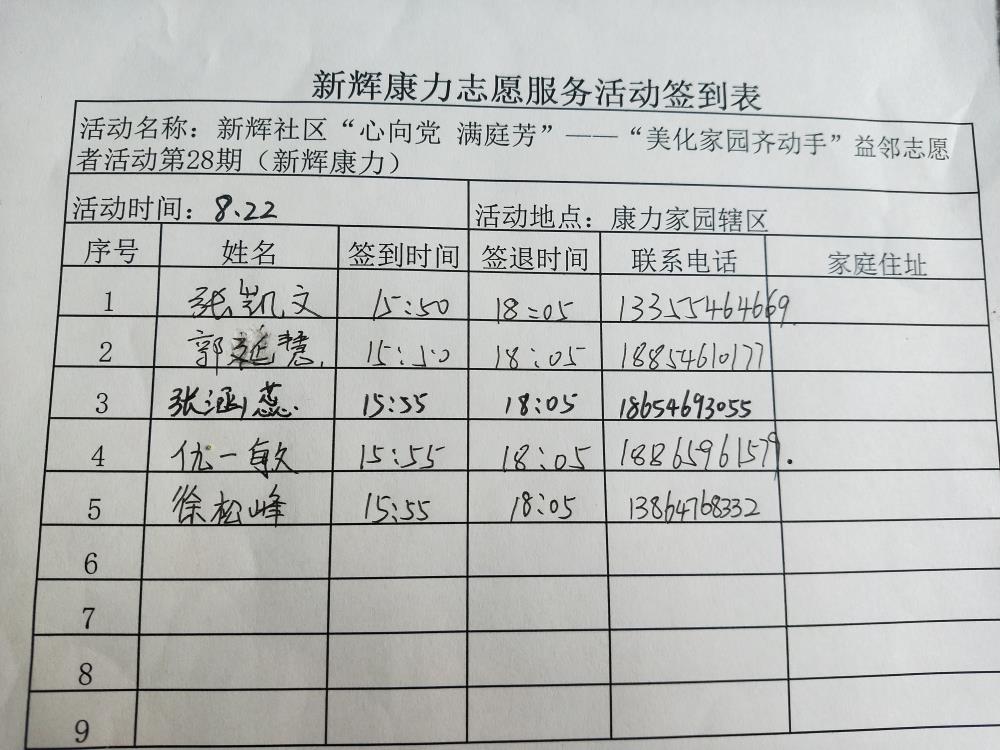 新辉康力志愿服务活动签到表
活动名称：新辉社区“心向党 满庭芳”——“美化家园齐动手”益邻志愿
者活动第28期（新辉康力）
活动时间：8.22 活动地点：康力家园辖区
序号 姓名 签到时间 签退时间 联系电话 家庭住址
1 张凯文 15:50 18:05 13355464669
2 郭延慧 15:50 18:05 18854610177
3 张涵蕊 15:55 18:05 18654693055
4 一敏 15:55 18:05 18865961579.
5 徐松峰 15:55 18:05 13864768332
6
7
8
9